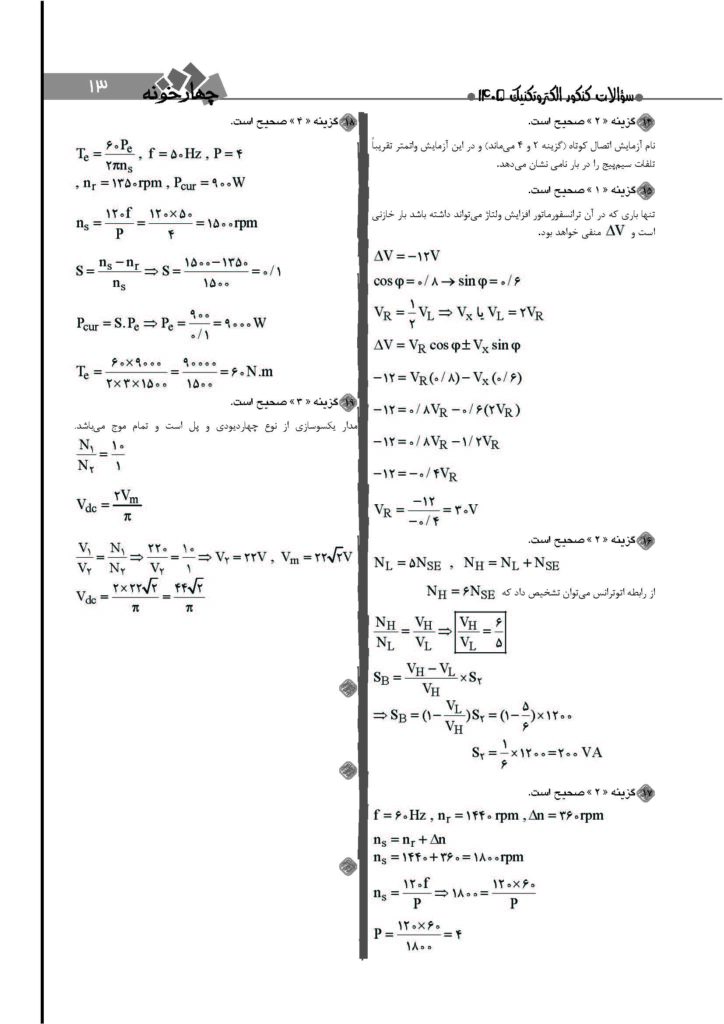 ۱۳
چهارخونه
سؤالات کنکور الکتروتکنیک ۱۴۰۲
۱۴. گزینه «۲» صحیح است.
نام آزمایش اتصال کوتاه (گزینه ۲ و ۴ می‌ماند) و در این آزمایش واتمتر تقریباً
تلفات سیم‌پیچ را در بار نامی نشان می‌دهد.
۱۵. گزینه «۱» صحیح است.
تنها باری که در آن ترانسفورماتور افزایش ولتاژ می‌تواند داشته باشد بار خازنی
است و ΔV منفی خواهد بود.
ΔV = −۱۲V
cos φ = ۰/۸ → sin φ = ۰/۶
V_R = ۱/۲ V_L ⇒ V_x یا V_L = ۲V_R
ΔV = V_R cos φ ± V_x sin φ
−۱۲ = V_R(۰/۸) − V_x(۰/۶)
−۱۲ = ۰/۸V_R − ۰/۶(۲V_R)
−۱۲ = ۰/۸V_R − ۱/۲V_R
−۱۲ = −۰/۴V_R
V_R = −۱۲ / −۰/۴ = ۳۰V
۱۶. گزینه «۲» صحیح است.
N_L = ۵N_SE , N_H = N_L + N_SE
از رابطه اتوترانس می‌توان تشخیص داد که N_H = ۶N_SE
N_H/N_L = V_H/V_L ⇒ V_H/V_L = ۶/۵
S_B = (V_H − V_L)/V_H × S_۲
⇒ S_B = (۱ − V_L/V_H)S_۲ = (۱ − ۵/۶) × ۱۲۰۰
S_۲ = ۱/۶ × ۱۲۰۰ = ۲۰۰ VA
۱۷. گزینه «۲» صحیح است.
f = ۶۰Hz , n_r = ۱۴۴۰ rpm , Δn = ۳۶۰rpm
n_s = n_r + Δn
n_s = ۱۴۴۰ + ۳۶۰ = ۱۸۰۰rpm
n_s = ۱۲۰f/P ⇒ ۱۸۰۰ = ۱۲۰×۶۰/P
P = ۱۲۰×۶۰/۱۸۰۰ = ۴
۱۸. گزینه «۴» صحیح است.
T_e = ۶۰P_e/۲πn_s , f = ۵۰Hz , P = ۴
, n_r = ۱۳۵۰rpm , P_cur = ۹۰۰W
n_s = ۱۲۰f/P = ۱۲۰×۵۰/۴ = ۱۵۰۰rpm
S = (n_s − n_r)/n_s ⇒ S = (۱۵۰۰−۱۳۵۰)/۱۵۰۰ = ۰/۱
P_cur = S.P_e ⇒ P_e = ۹۰۰ / ۰/۱ = ۹۰۰۰W
T_e = ۶۰×۹۰۰۰/۲×۳×۱۵۰۰ = ۹۰۰۰۰/۱۵۰۰ = ۶۰N.m
۱۹. گزینه «۳» صحیح است.
مدار یکسوسازی از نوع چهاردیودی و پل است و تمام موج می‌باشد.
N_۱/N_۲ = ۱۰/۱
V_dc = ۲V_m/π
V_۱/V_۲ = N_۱/N_۲ ⇒ ۲۲۰/V_۲ = ۱۰/۱ ⇒ V_۲ = ۲۲V , V_m = ۲۲√۲V
V_dc = ۲×۲۲√۲/π = ۴۴√۲/π